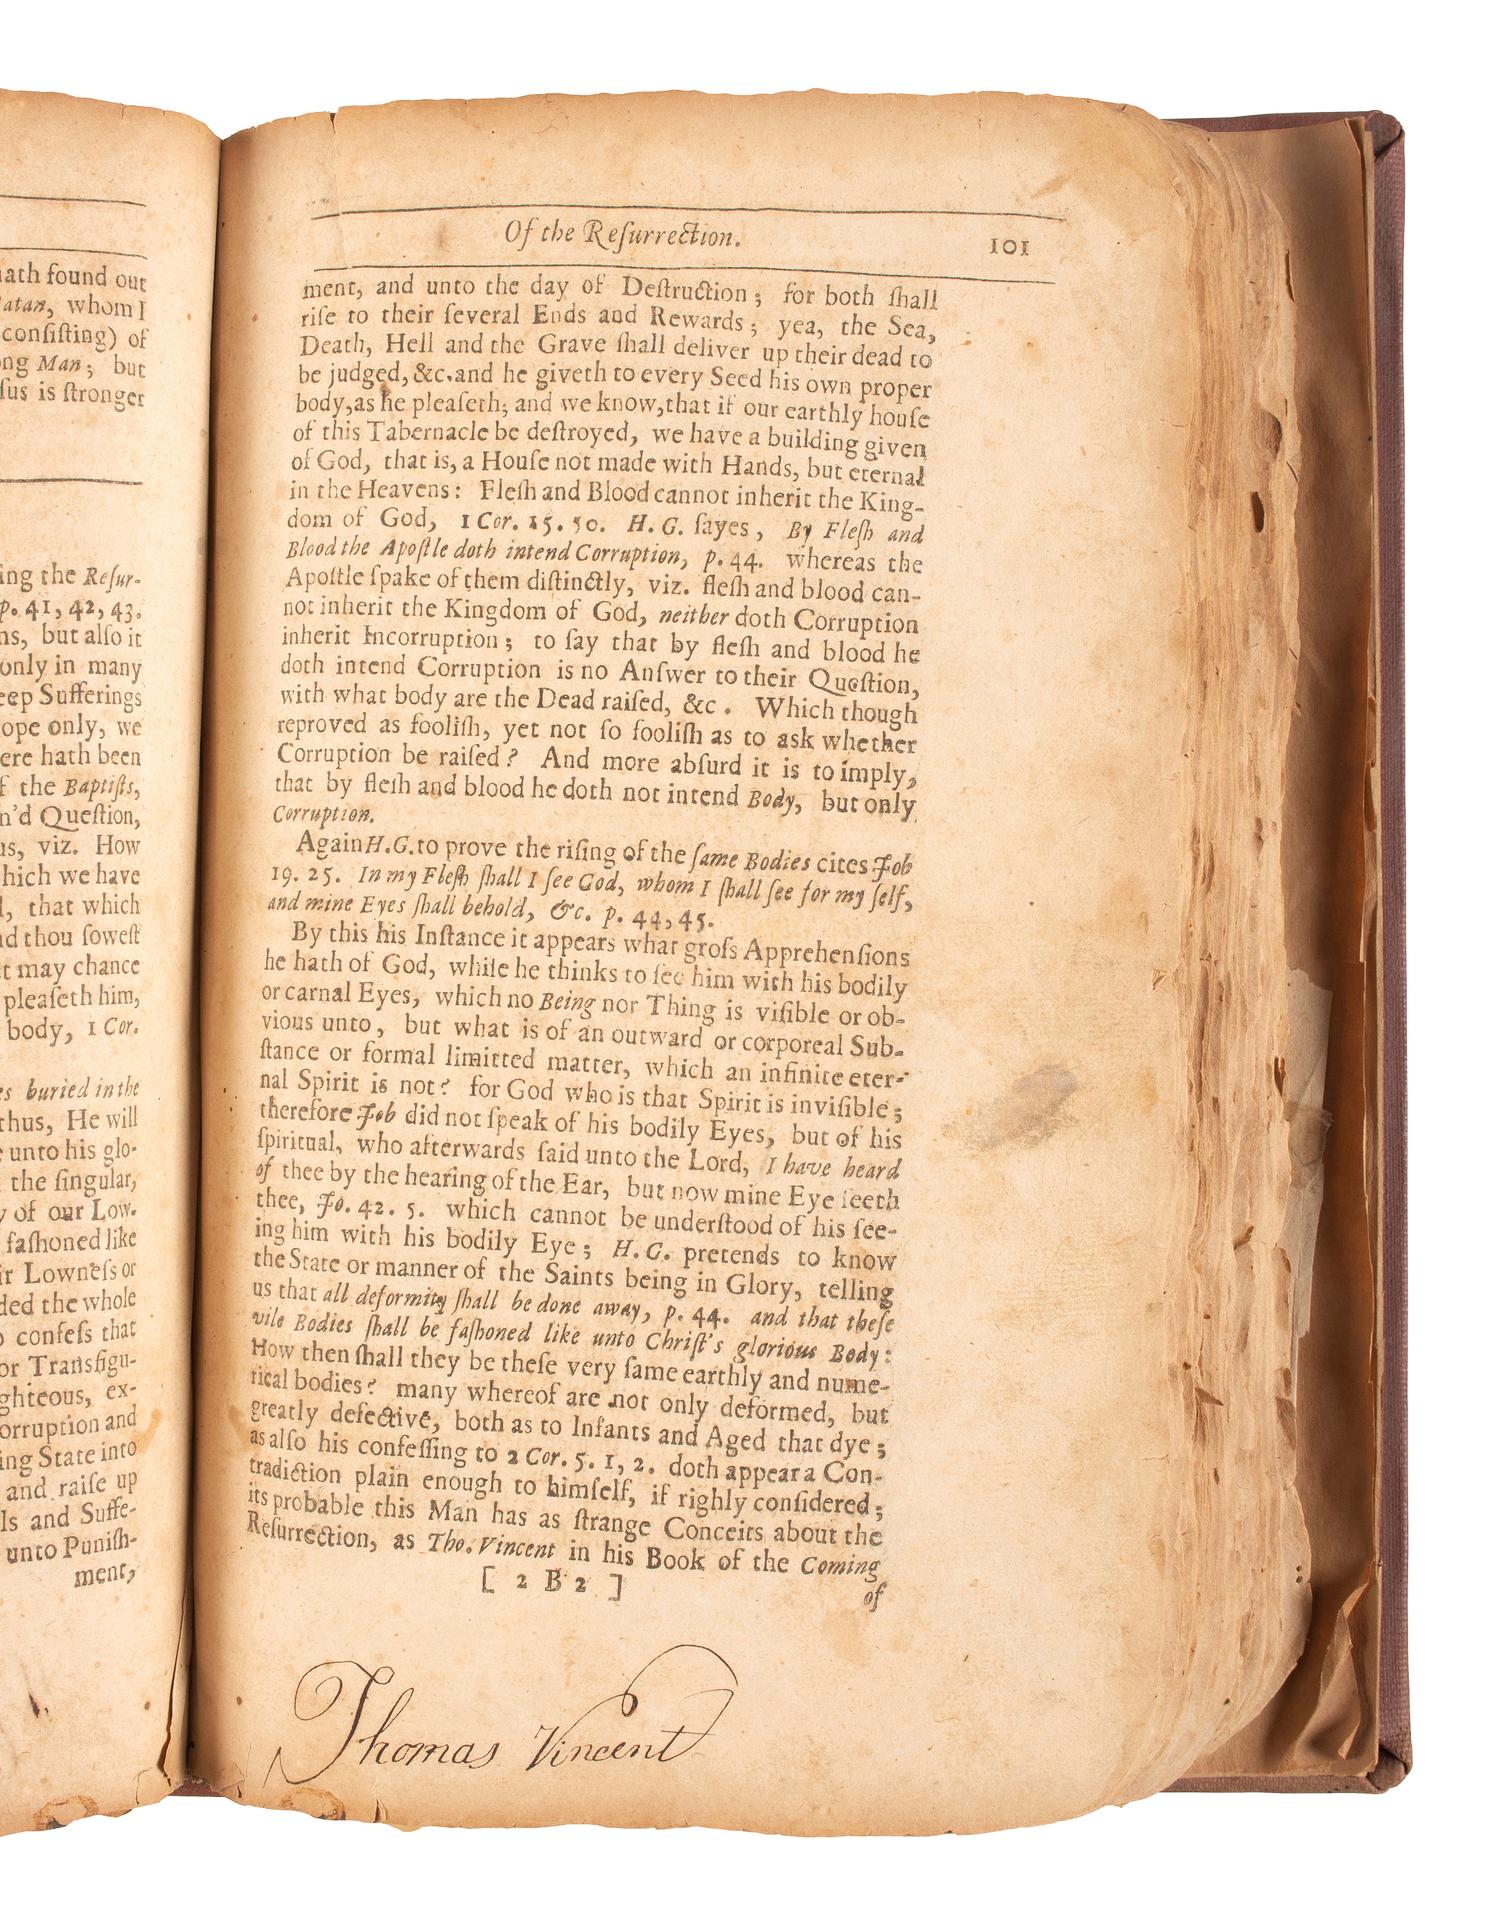 hath found out
Satan, whom I
consisting) of
ong Man; but
sus is stronger
ing the Resur-
p. 41, 42, 43.
ns, but also it
only in many
eep Sufferings
ope only, we
ere hath been
f the Baptists,
n'd Question,
us, viz. How
hich we have
l, that which
nd thou sowest
t may chance
pleaseth him,
body, 1 Cor.
es buried in the
thus, He will
e unto his glo-
the singular,
y of our Low-
fashoned like
ir Lowness or
ded the whole
o confess that
or Transfigu-
ghteous, ex-
orruption and
ing State into
and raise up
ls and Suffe-
unto Punish-
ment,
Of the Reſurrection. 101
ment, and unto the day of Deſtruction; for both ſhall
riſe to their ſeveral Ends and Rewards; yea, the Sea,
Death, Hell and the Grave ſhall deliver up their dead to
be judged, &c. and he giveth to every Seed his own proper
body, as he pleaſeth; and we know, that if our earthly houſe
of this Tabernacle be deſtroyed, we have a building given
of God, that is, a Houſe not made with Hands, but eternal
in the Heavens: Fleſh and Blood cannot inherit the King-
dom of God, 1 Cor. 15. 50. H. G. ſayes, By Fleſh and
Blood the Apoſtle doth intend Corruption, p. 44. whereas the
Apoſtle ſpake of them diſtinctly, viz. fleſh and blood can-
not inherit the Kingdom of God, neither doth Corruption
inherit Incorruption; to ſay that by fleſh and blood he
doth intend Corruption is no Anſwer to their Queſtion,
with what body are the Dead raiſed, &c. Which though
reproved as fooliſh, yet not ſo fooliſh as to ask whether
Corruption be raiſed? And more abſurd it is to imply,
that by fleſh and blood he doth not intend Body, but only
Corruption.
Again H. G. to prove the riſing of the ſame Bodies cites Job
19. 25. In my Fleſh ſhall I ſee God, whom I ſhall ſee for my ſelf,
and mine Eyes ſhall behold, &c. p. 44, 45.
By this his Inſtance it appears what groſs Apprehenſions
he hath of God, while he thinks to ſee him with his bodily
or carnal Eyes, which no Being nor Thing is viſible or ob-
vious unto, but what is of an outward or corporeal Sub-
ſtance or formal limitted matter, which an infinite eter-
nal Spirit is not? for God who is that Spirit is inviſible;
therefore Job did not ſpeak of his bodily Eyes, but of his
ſpiritual, who afterwards ſaid unto the Lord, I have heard
of thee by the hearing of the Ear, but now mine Eye ſeeth
thee, Jo. 42. 5. which cannot be underſtood of his ſee-
ing him with his bodily Eye; H. G. pretends to know
the State or manner of the Saints being in Glory, telling
us that all deformity ſhall be done away, p. 44. and that theſe
vile Bodies ſhall be faſhoned like unto Chriſt's glorious Body:
How then ſhall they be theſe very ſame earthly and nume-
rical bodies? many whereof are not only deformed, but
greatly defective, both as to Infants and Aged that dye;
as alſo his confeſſing to 2 Cor. 5. 1, 2. doth appear a Con-
tradiction plain enough to himſelf, if righly conſidered;
its probable this Man has as ſtrange Conceits about the
Reſurrection, as Tho. Vincent in his Book of the Coming
[ 2 B 2 ] of
Thomas Vincent